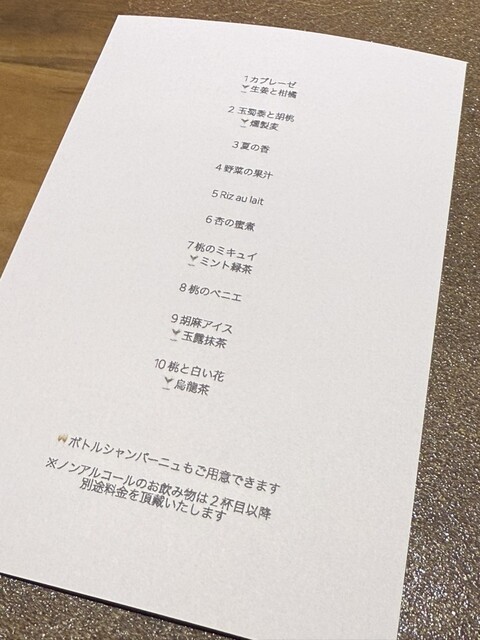 1 カプレーゼ
🍸生姜と柑橘
2 玉蜀黍と胡桃
🍸燻製麦
3 夏の香
4 野菜の果汁
5 Riz au lait
6 杏の蜜煮
7 桃のミキュイ
🍸ミント緑茶
8 桃のベニエ
9 胡麻アイス
🍸玉露抹茶
10 桃と白い花
🍸烏龍茶
🥂ボトルシャンパーニュもご用意できます
※ノンアルコールのお飲み物は２杯目以降
別途料金を頂戴いたします